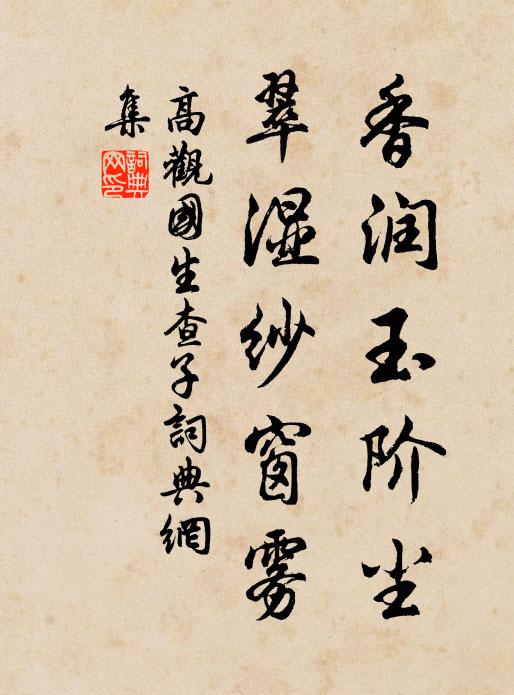 香润玉阶尘
翠湿纱窗雾
高觀國生查子詞典網
集
詞典网印